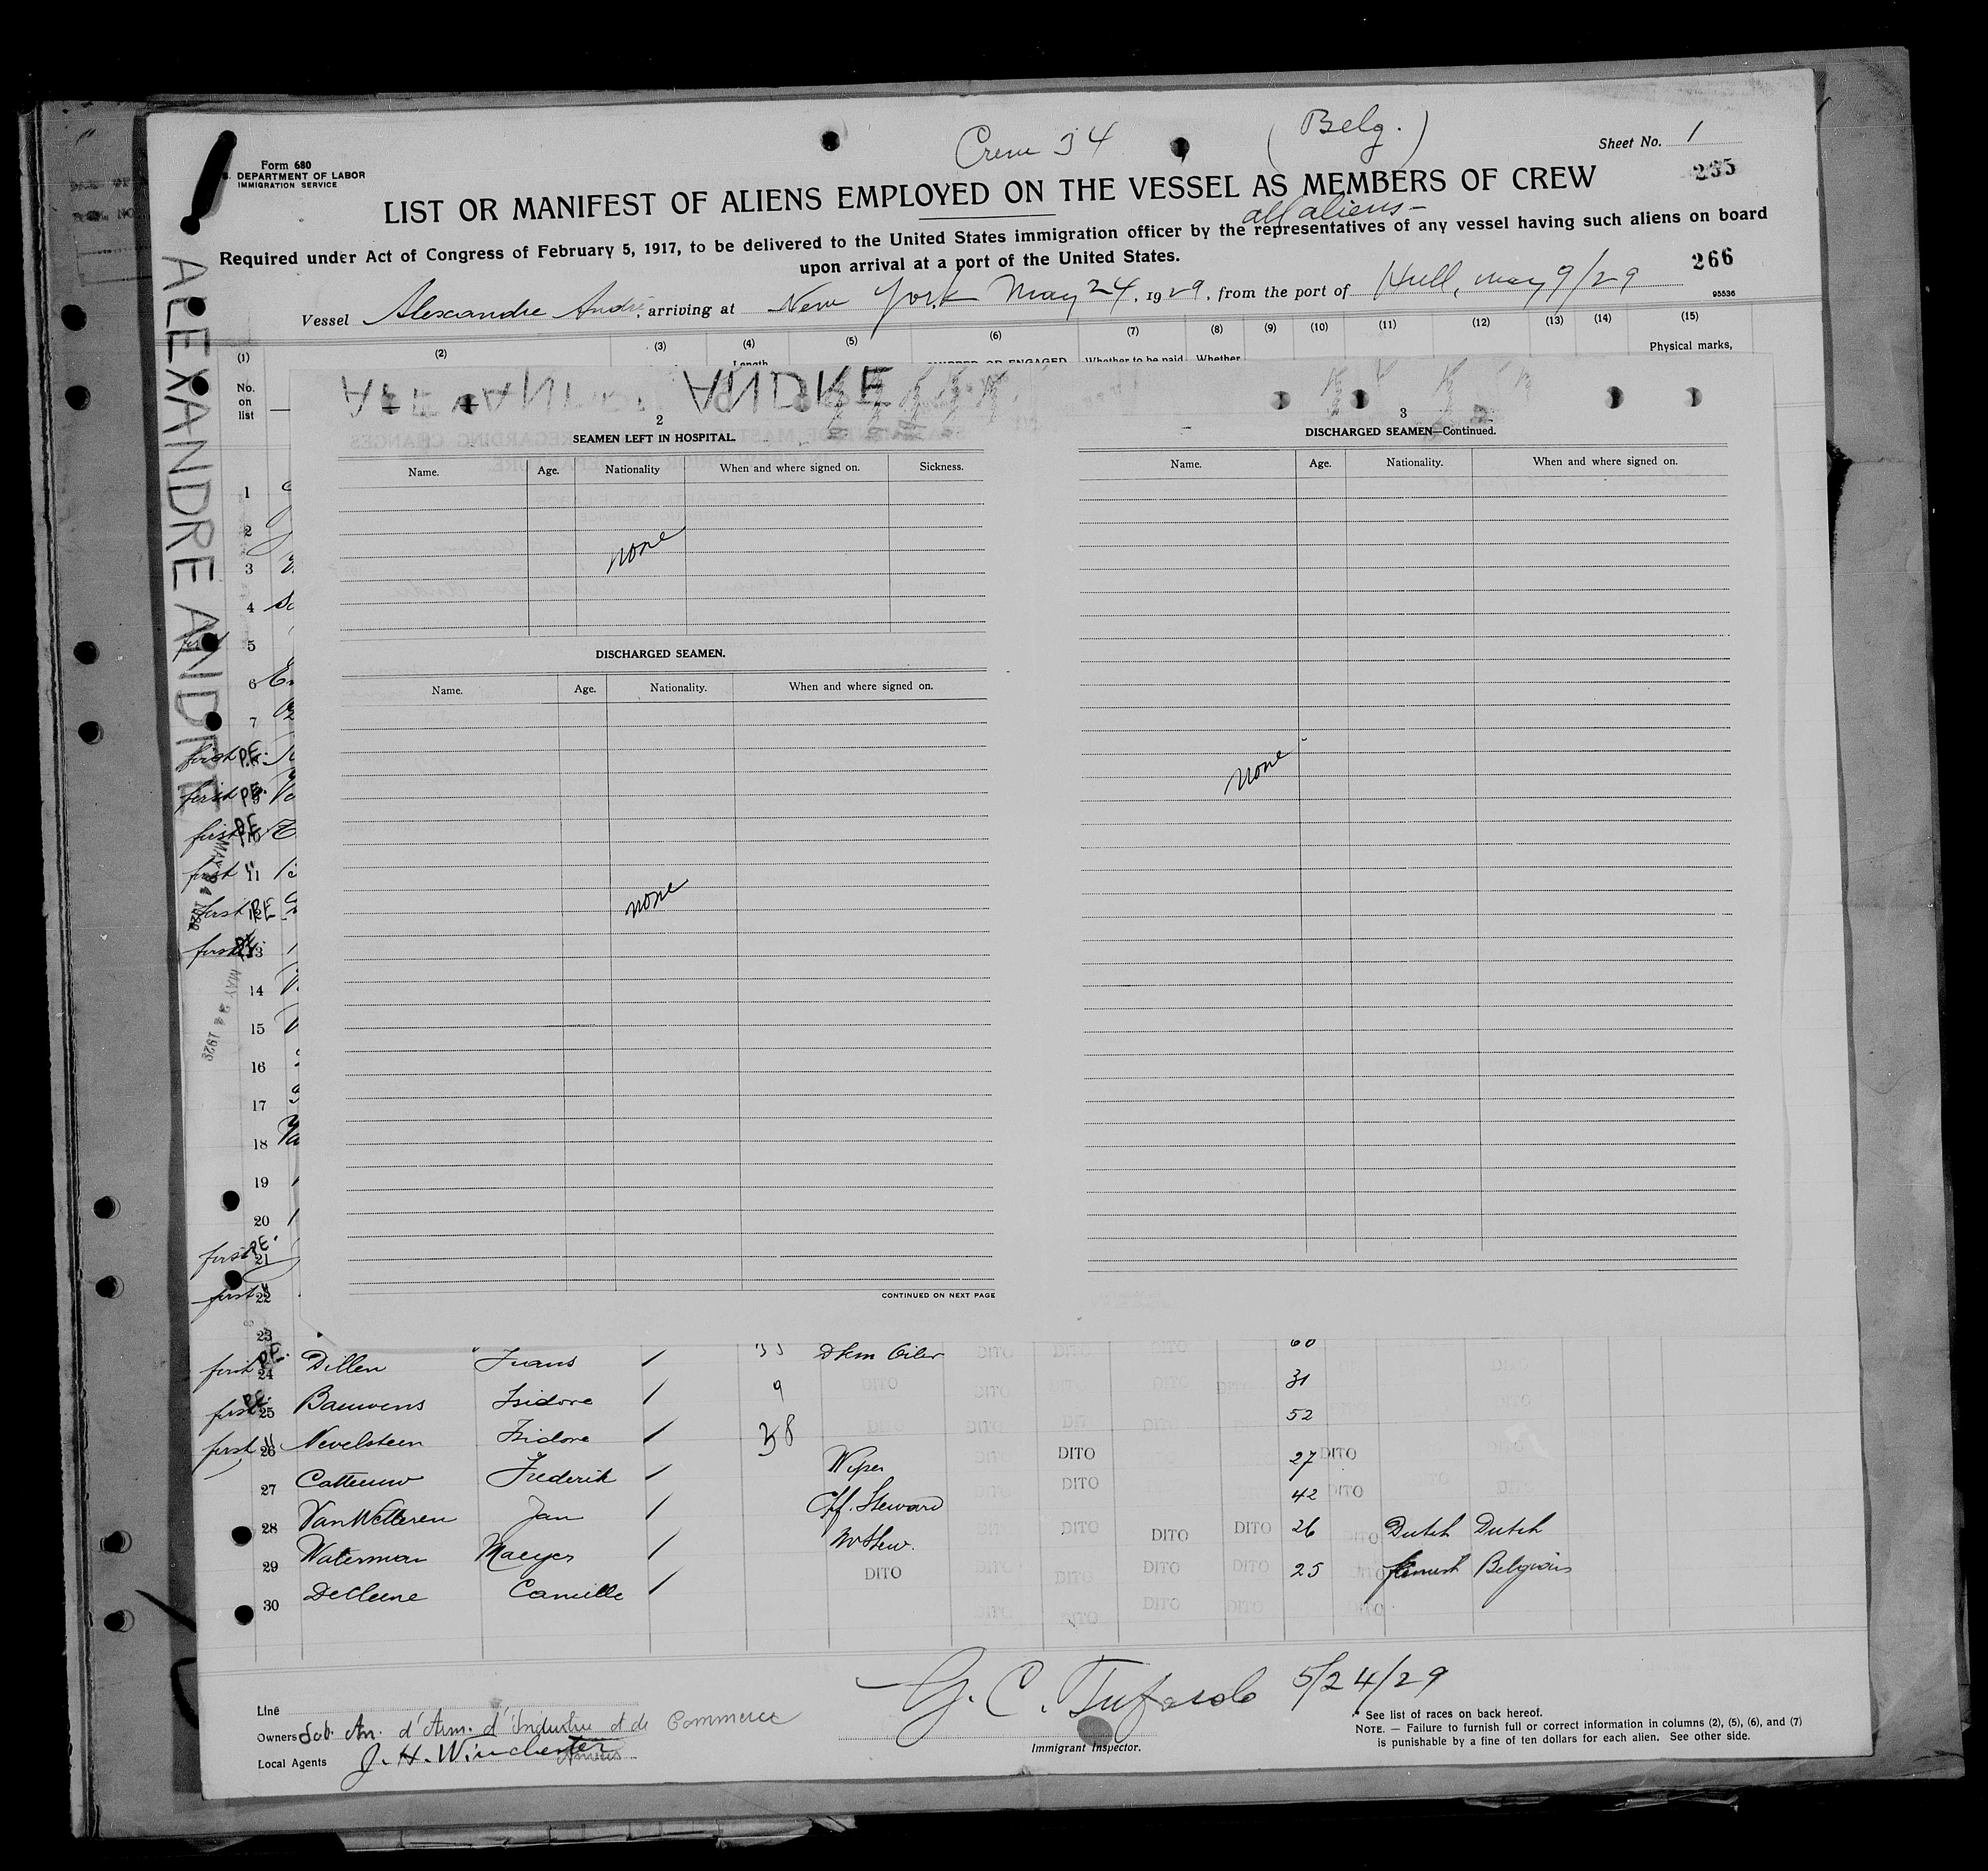 Crew 34 (Belg.)
Sheet No. 1
Form 680
DEPARTMENT OF LABOR
IMMIGRATION SERVICE
235
LIST OR MANIFEST OF ALIENS EMPLOYED ON THE VESSEL AS MEMBERS OF CREW
all aliens-
Required under Act of Congress of February 5, 1917, to be delivered to the United States immigration officer by the representatives of any vessel having such aliens on board
upon arrival at a port of the United States.
266
Vessel Alexandre André, arriving at New York May 24, 1929, from the port of Hull, may 9/29
95536
(1) (2) (3) (4) (5) (6) (7) (8) (9) (10) (11) (12) (13) (14) (15)
Length Whether to be paid Whether Physical marks,
No. on list
ALEXANDRE ANDRE
ANDRE
2
SEAMEN LEFT IN HOSPITAL.
Name. Age. Nationality When and where signed on. Sickness.
none
DISCHARGED SEAMEN.
Name. Age. Nationality. When and where signed on.
none
CONTINUED ON NEXT PAGE
3
DISCHARGED SEAMEN—Continued.
Name. Age. Nationality. When and where signed on.
none
1
2
3
4
5
6
7
first P.E.
first P.E. 9
first P.E. 10
first " 11
first P.E. 12
first P.E. 13
MAY 24 1929
14
MAY 24 1929
15
16
17
18
19
20
first P.E. 21
first " 22
23
60
first P.E. 24 Dillen Frans Dkm Oiler DITO DITO DITO DITO
31
first P.E. 25 Bauwens Isidore 9 DITO DITO DITO DITO DITO
52
first " 26 Nevelsteen Isidore 38 DITO DITO DITO DITO
27 DITO
27 Catteeuw Frederik Wiper DITO DITO
42 DITO
28 Van Wetteren Jan Chf. Steward DITO DITO DITO
26 DITO Dutch Dutch
29 Waterman Maeyer DITO DITO DITO DITO
25 DITO flemish Belgians
30 DeCleene Camille DITO DITO DITO DITO DITO
G. C. Tufarolo 5/24/29
Immigrant Inspector.
Line
Owners Sob. An. d'Arm. d'Industrie et de Commerce
Local Agents J. H. Winchester
* See list of races on back hereof.
NOTE. — Failure to furnish full or correct information in columns (2), (5), (6), and (7)
is punishable by a fine of ten dollars for each alien. See other side.